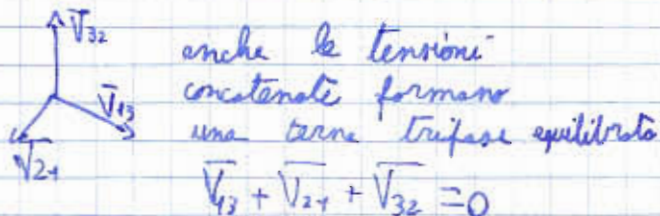 V̅32
anche le tensioni
concatenate formano
V̅13
una terna trifase equilibrata
V̅21
V̅13 + V̅21 + V̅32 = 0